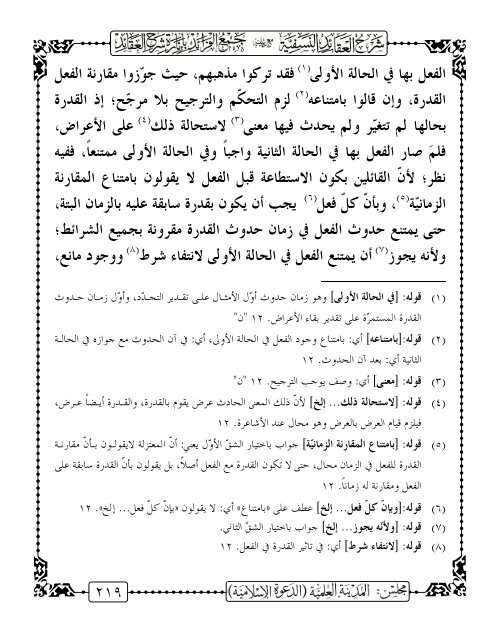 شرح العقائد النسفية مع جمع الفرائد بإنارة شرح العقائد
الفعل بها في الحالة الأولى(١) فقد تركوا مذهبهم، حيث جوّزوا مقارنة الفعل
القدرة، وإن قالوا بامتناعه(٢) لزم التحكّم والترجيح بلا مرجّح؛ إذ القدرة
بحالها لم تتغيّر ولم يحدث فيها معنى(٣) لاستحالة ذلك(٤) على الأعراض،
فلمَ صار الفعل بها في الحالة الثانية واجباً وفي الحالة الأولى ممتنعاً، ففيه
نظر؛ لأنّ القائلين بكون الاستطاعة قبل الفعل لا يقولون بامتناع المقارنة
الزمانيّة(٥)، وبأنّ كلّ فعل(٦) يجب أن يكون بقدرة سابقة عليه بالزمان البتة،
حتى يمتنع حدوث الفعل في زمان حدوث القدرة مقرونة بجميع الشرائط؛
ولأنه يجوز(٧) أن يمتنع الفعل في الحالة الأولى لانتفاء شرط(٨) ووجود مانع،
(١) قوله: [في الحالة الأولى] وهو زمان حدوث أوّل الأمثال على تقدير التجدّد، وأوّل زمان حدوث
القدرة المستمرّة على تقدير بقاء الأعراض. ١٢ "ن"
(٢) قوله:[بامتناعه] أي: بامتناع وجود الفعل في الحالة الأولى، أي: في آن الحدوث مع جوازه في الحالة
الثانية أي: بعد آن الحدوث. ١٢
(٣) قوله: [معنى] أي: وصف يوجب الترجيح. ١٢ "ن"
(٤) قوله: [لاستحالة ذلك... إلخ] لأنّ ذلك المعنى الحادث عرض يقوم بالقدرة، والقدرة أيضاً عرض،
فيلزم قيام العرض بالعرض وهو محال عند الأشاعرة. ١٢
(٥) قوله: [بامتناع المقارنة الزمانيّة] جواب باختيار الشقّ الأوّل يعني: أنّ المعتزلة لايقولون بأنّ مقارنة
القدرة للفعل في الزمان محال، حتى لا تكون القدرة مع الفعل أصلاً، بل يقولون بأنّ القدرة سابقة على
الفعل ومقارنة له زماناً. ١٢
(٦) قوله: [وبإنّ كلّ فعل... إلخ] عطف على «بامتناع» أي: لا يقولون «بإنّ كلّ فعل... إلخ». ١٢
(٧) قوله: [ولأنّه يجوز... إلخ] جواب باختيار الشقّ الثاني.
(٨) قوله: [لانتفاء شرط] أي: في تاثير القدرة في الفعل. ١٢
مجلس: المدينة العلمية (الدعوة الإسلامية)
٢١٩